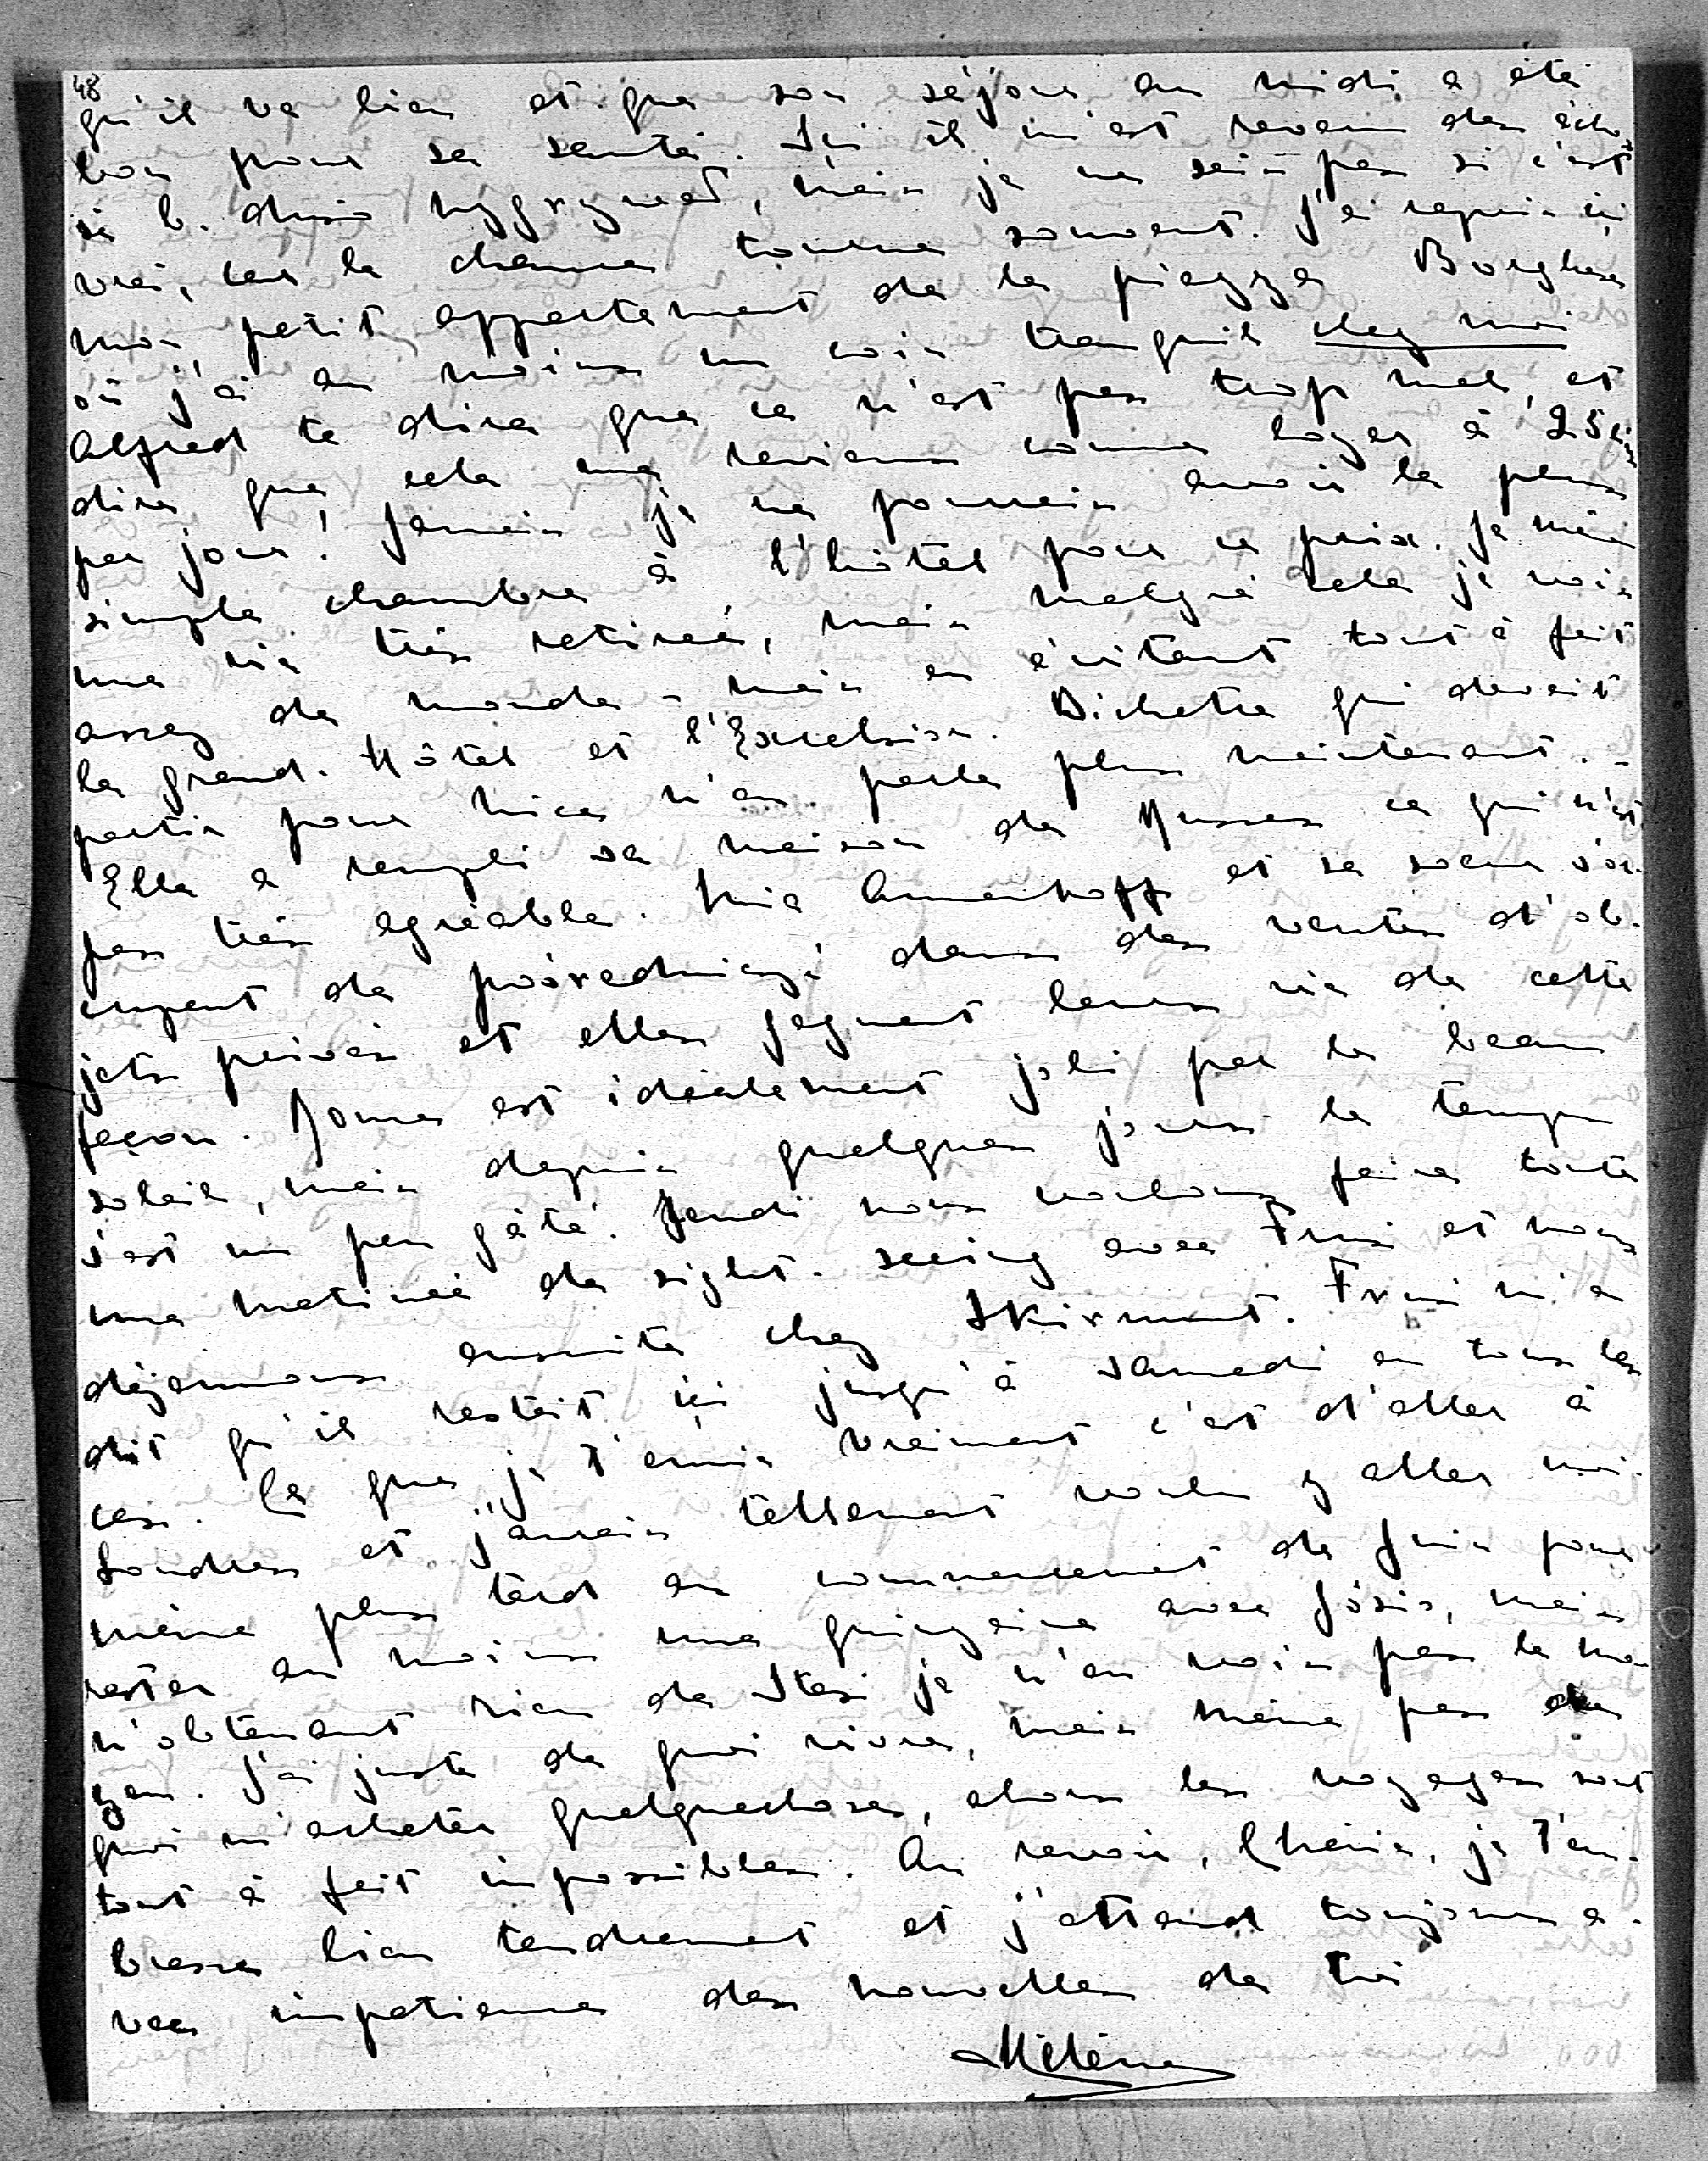 48
qu'il va bien et que son séjour au midi a été
bon pour sa santé. Ici il m'est revenu des échos
si b. dużo wygrywał, mais je ne sais pas si c'est
vrai, car la chance tourne souvent. J'ai repris ici
mon petit appartement de la piazza Borghese
où j'ai au moins un coin tranquil chez moi
Alfred te dira que ce n'est pas trop mal, et
dire que cela me revient comme loyer à 25
par jour! Jamais je ne pourrais avoir la plus
simple chambre à l'hôtel pour ce prix. Je mène
une vie très retirée, mais malgré cela je vois
assez de monde - mais en évitant tout à fait
le grand-Hôtel et l'Excelsior. Bichette qui devait
partir pour Nice n'en parle plus maintenant. -
Elle a rempli sa maison de Russes ce qui n'est
pas très agréable. et sa soeur s'oc-
cupent de pośrednictwie dans des ventes d'ob-
jets privés et elles gagnent leurs vie de cette
façon. Rome est idéalement joli par le beau
soleil, mais depuis quelques jours le temps
s'est un peu gâté. Jeudi nous voulons faire toute
une matinée de sight-seeing avec et nous
déjeunons ensuite chez Skirmunt. m'a
dit qu'il restait ici jusqu'à samedi en tous les
cas. Ce que je t'envie vraiment c'est d'aller à
Londres et j'aurais tellement voulu y aller moi-
même plus tard au commencement de Juin pour
rester au moins une quinzaine avec Józio, mais
n'obtenant rien de Stas je n'en vois pas le mo-
yen. J'ai juste de quoi vivre, mais même pas de
quoi m'acheter quelquechose, alors les voyages sont
tout à fait impossibles. Au revoir, Chérie, je t'em-
brasse bien tendrement et j'attend toujours a-
vec impatience des nouvelles de toi
Hélène